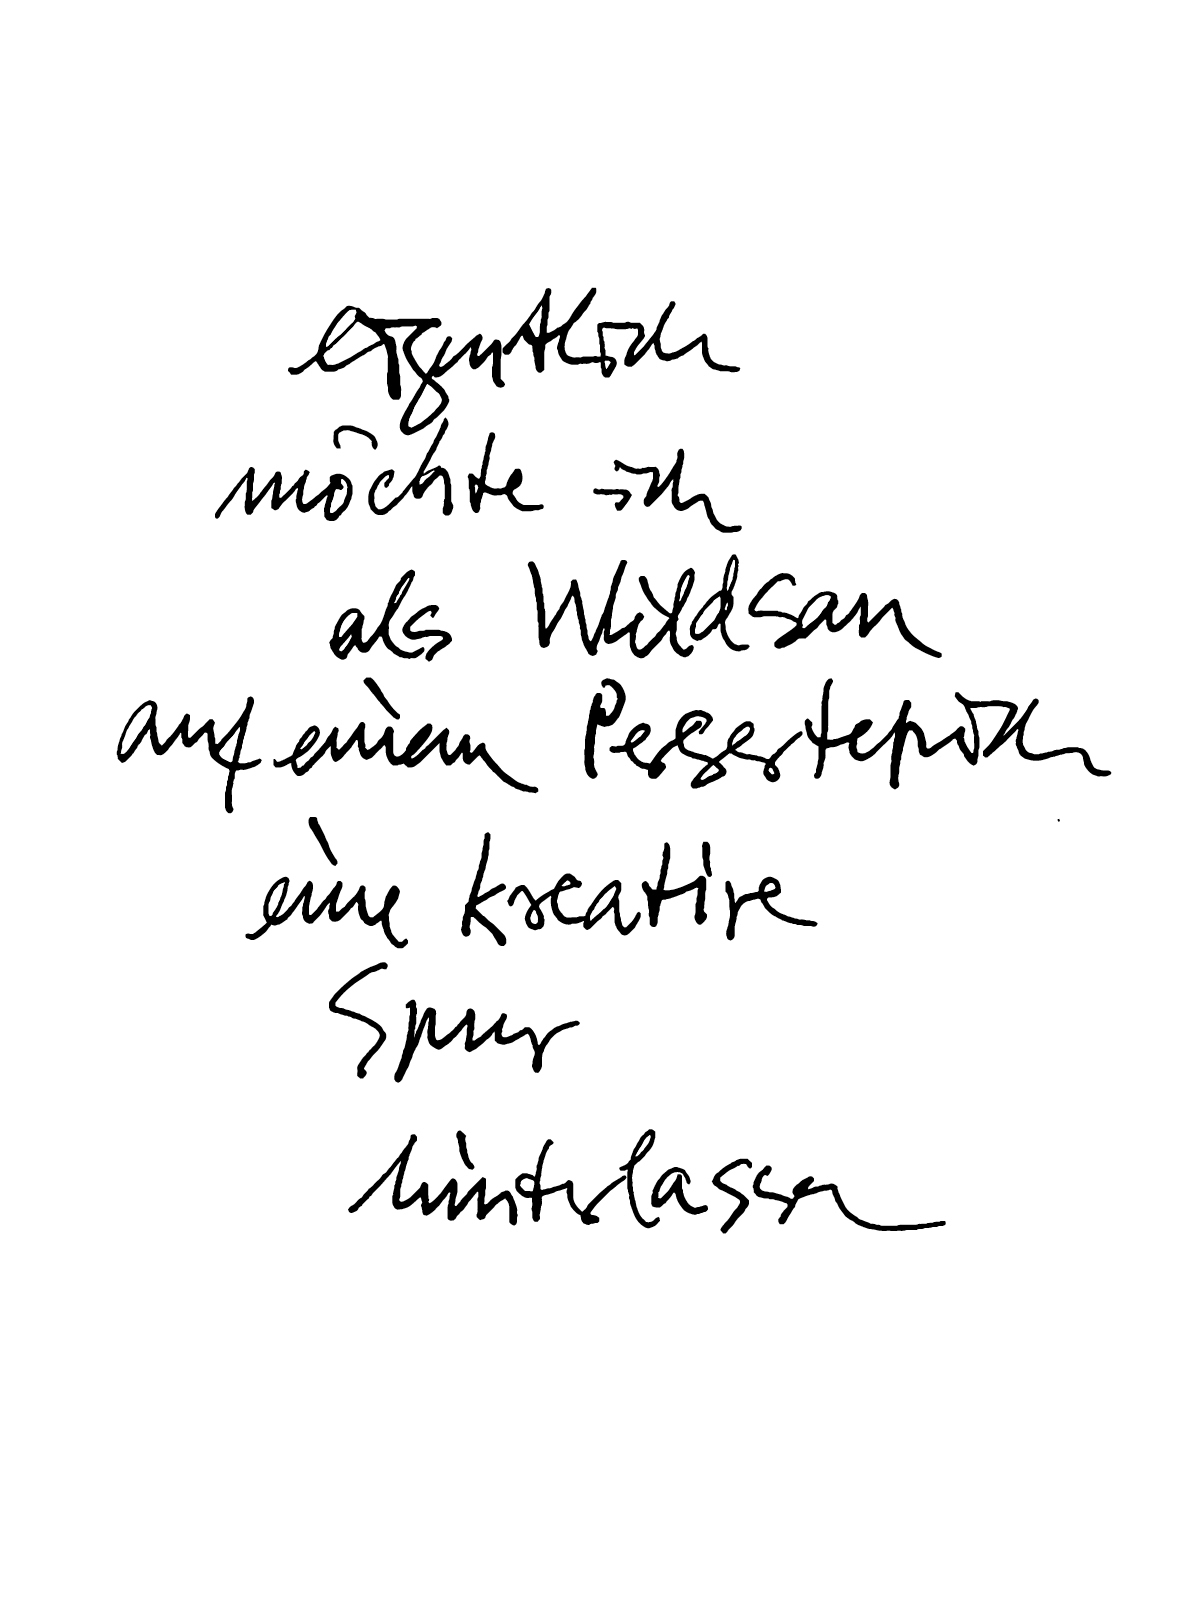 eigentlich
möchte ich
als Wildsau
auf einem Perserteppich
eine kreative
Spur
hinterlassen